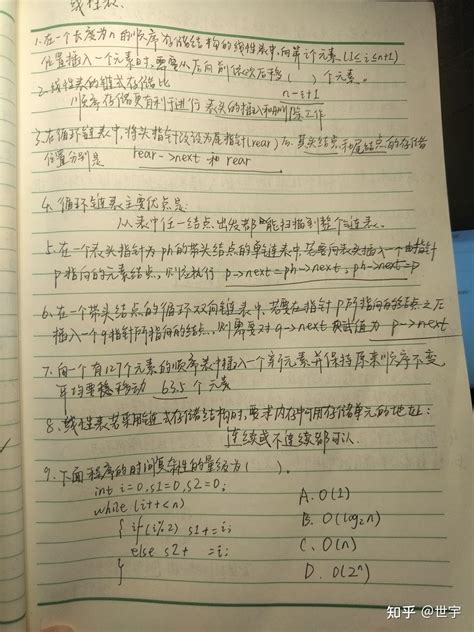 线性表.
1.在一个长度为n的顺序存储结构的线性表中,向第i个元素(1≤i≤n+1)
位置插入一个元素时,需要从后向前依次后移( )个元素.
n-i+1
2.线性表的链式存储比
顺序存储更有利于进行 表头的插入和删除工作
3.在循环链表中,将头指针改设为尾指针(rear)后,其头结点和尾结点的存储
位置分别是 rear->next 和 rear
4.循环链表主要优点是:
从表中任一结点出发都能扫描到整个链表.
5.在一个表头指针为ph的带头结点的单链表中,若要向表头插入一个由指针
p指向的元素结点,则应执行 p->next=ph->next;ph->next=p
6.在一个带头结点的循环双向链表中,若要在指针P所指向的结点之后
插入一个q指针所指向的结点,则需要对q->next赋值为 p->next
7.向一个有127个元素的顺序表中插入一个新元素并保持原来顺序不变
平均要移动 63.5 个元素
8.线性表若采用链式存储结构时,要求内存中可用存储单元的地址:
连续或不连续都可以.
9.下面程序的时间复杂性的量级为( ).
int i=0,s1=0,s2=0; A.O(1)
while (i++<n) B.O(log₂n)
{ if(i%2) s1+=i; C.O(n)
else s2+ =i; D.O(2ⁿ)
}
知乎 @世宇